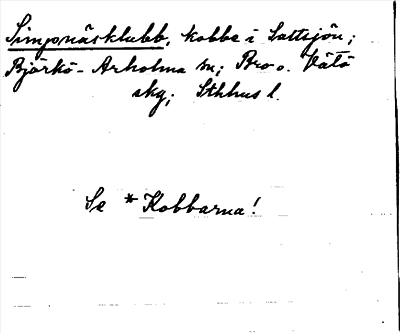 Simpnäsklubb, kobbe i Saltsjön;
Björkö-Arholma sn; Bro o. Vätö
skg; Sthhus l.
Se * Kobbarna!